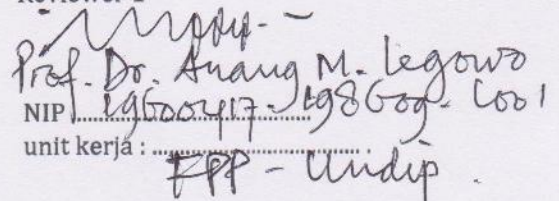 Reviewer
Prof. Dr. Anang M. Legowo
NIP 19600417.198603.1001
unit kerja : FPP - Undip.